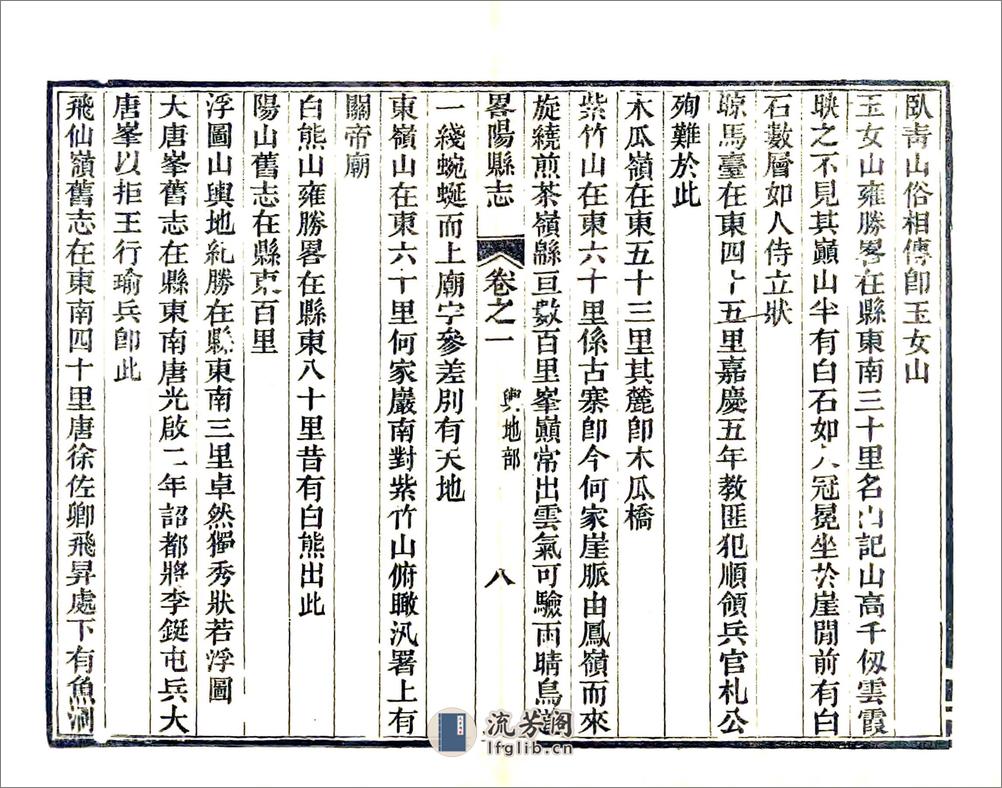 臥青山俗相傳卽玉女山
玉女山雍勝畧在縣東南三十里名山記山高千仭雲霞
映之不見其巔山半有白石如人冠冕坐於崖閒前有白
石數層如人侍立狀
晾馬臺在東四十五里嘉慶五年教匪犯順領兵官札公
殉難於此
木瓜嶺在東五十三里其麓卽木瓜橋
紫竹山在東六十里係古寨卽今何家崖脈由鳳嶺而來
旋繞煎茶嶺緜亘數百里峯巔常出雲氣可驗雨晴鳥
畧陽縣志
卷之一
輿地部
八
一綫蜿蜒而上廟宇參差別有天地
東嶺山在東六十里何家巖南對紫竹山俯瞰汛署上有
關帝廟
白熊山雍勝畧在縣東八十里昔有白熊出此
陽山舊志在縣東百里
浮圖山輿地紀勝在縣東南三里卓然獨秀狀若浮圖
大唐峯舊志在縣東南唐光啟二年詔都將李鋋屯兵大
唐峯以拒王行瑜兵卽此
飛仙嶺舊志在東南四十里唐徐佐卿飛昇處下有魚洞
流芳閣
lfglib.cn